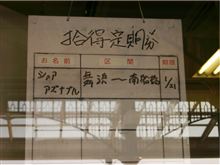 拾得定期分
お名前 区間 期限
シャア アズナブル 舞浜〜南船橋 1/21